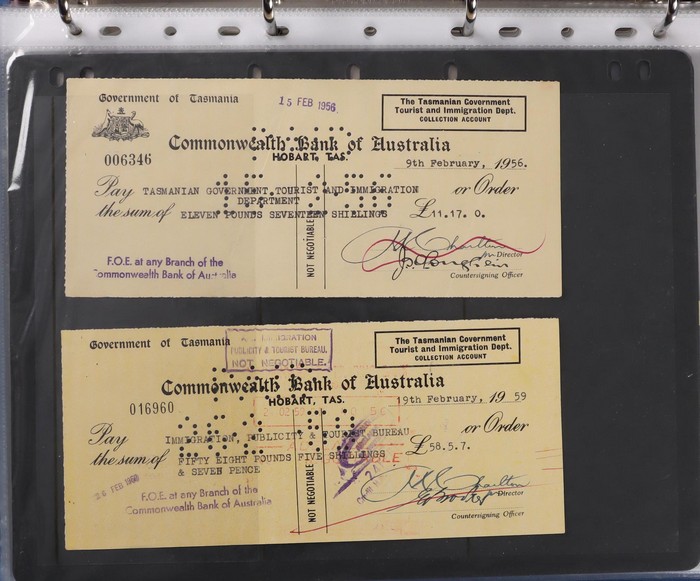 Government of Tasmania
15 FEB 1956
The Tasmanian Government
Tourist and Immigration Dept.
COLLECTION ACCOUNT
Commonwealth Bank of Australia
HOBART, TAS.
006346
9th February, 1956.
Pay TASMANIAN GOVERNMENT TOURIST AND IMMIGRATION or Order
DEPARTMENT
the sum of ELEVEN POUNDS SEVENTEEN SHILLINGS £11.17. 0.
NOT NEGOTIABLE
F.O.E. at any Branch of the
Commonwealth Bank of Australia
Director
Countersigning Officer
Government of Tasmania
IMMIGRATION
PUBLICITY & TOURIST BUREAU.
NOT NEGOTIABLE.
The Tasmanian Government
Tourist and Immigration Dept.
COLLECTION ACCOUNT
Commonwealth Bank of Australia
HOBART, TAS.
016960
19th February, 19 59
Pay IMMIGRATION, PUBLICITY & TOURIST BUREAU or Order
the sum of FIFTY EIGHT POUNDS FIVE SHILLINGS £58.5.7.
& SEVEN PENCE
NOT NEGOTIABLE
F.O.E. at any Branch of the
Commonwealth Bank of Australia
Director
Countersigning Officer